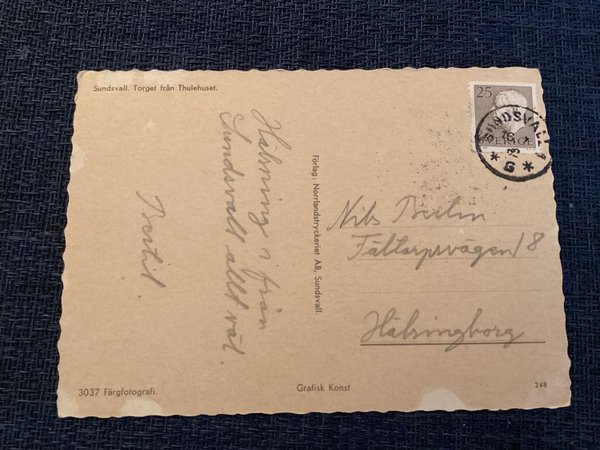 Sundsvall. Torget från Thulehuset.
Hälsning i från
Sundsvall allt väl.
Bertil.
Förlag: Norrlandstryckeriet AB, Sundsvall.
25
SVERIGE
SUNDSVALL
G
Nils Berlin
Fältarpsvägen 18
Hälsingborg
3037 Färgfotografi.
Grafisk Konst
248